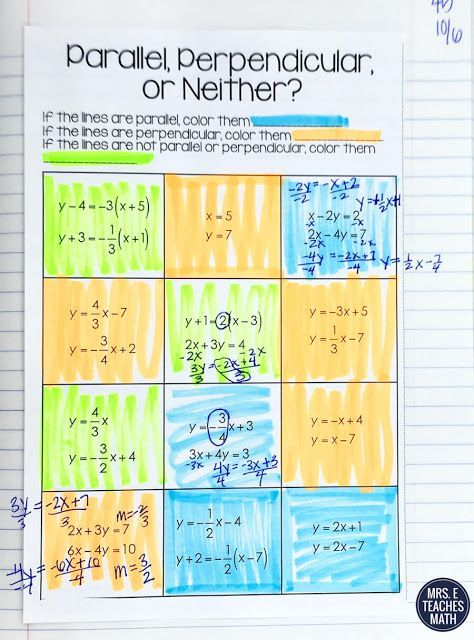 10/6
Parallel, Perpendicular,
or Neither?
If the lines are parallel, color them
If the lines are perpendicular, color them
If the lines are not parallel or perpendicular, color them
y – 4 = –3(x + 5)
y + 3 = –1/3(x + 1)
x = 5
y = 7
-2y = -x+2
-2 -2
x – 2y = 2
-x -x
2x – 4y = 7
-2x -2x
-4y = -2x+7
-4 -4
y = 1/2x - 7/4
y = 4/3x – 7
y = –3/4x + 2
y + 1 = 2(x – 3)
2x + 3y = 4
-2x -2x
3y = -2x+4
3 3
y = –3x + 5
y = 1/3x – 7
y = 4/3x
y = –3/2x + 4
y = –3/4x + 3
3x + 4y = 3
-3x
4y = -3x+3
4 4
y = –x + 4
y = x – 7
3y = -2x+7
3 3
2x + 3y = 7
m=-2/3
6x – 4y = 10
-4y = -6x+10
-4 -4
m = 3/2
y = –1/2x – 4
y + 2 = –1/2(x – 7)
y = 2x + 1
y = 2x – 7
MRS. E
TEACHES
MATH